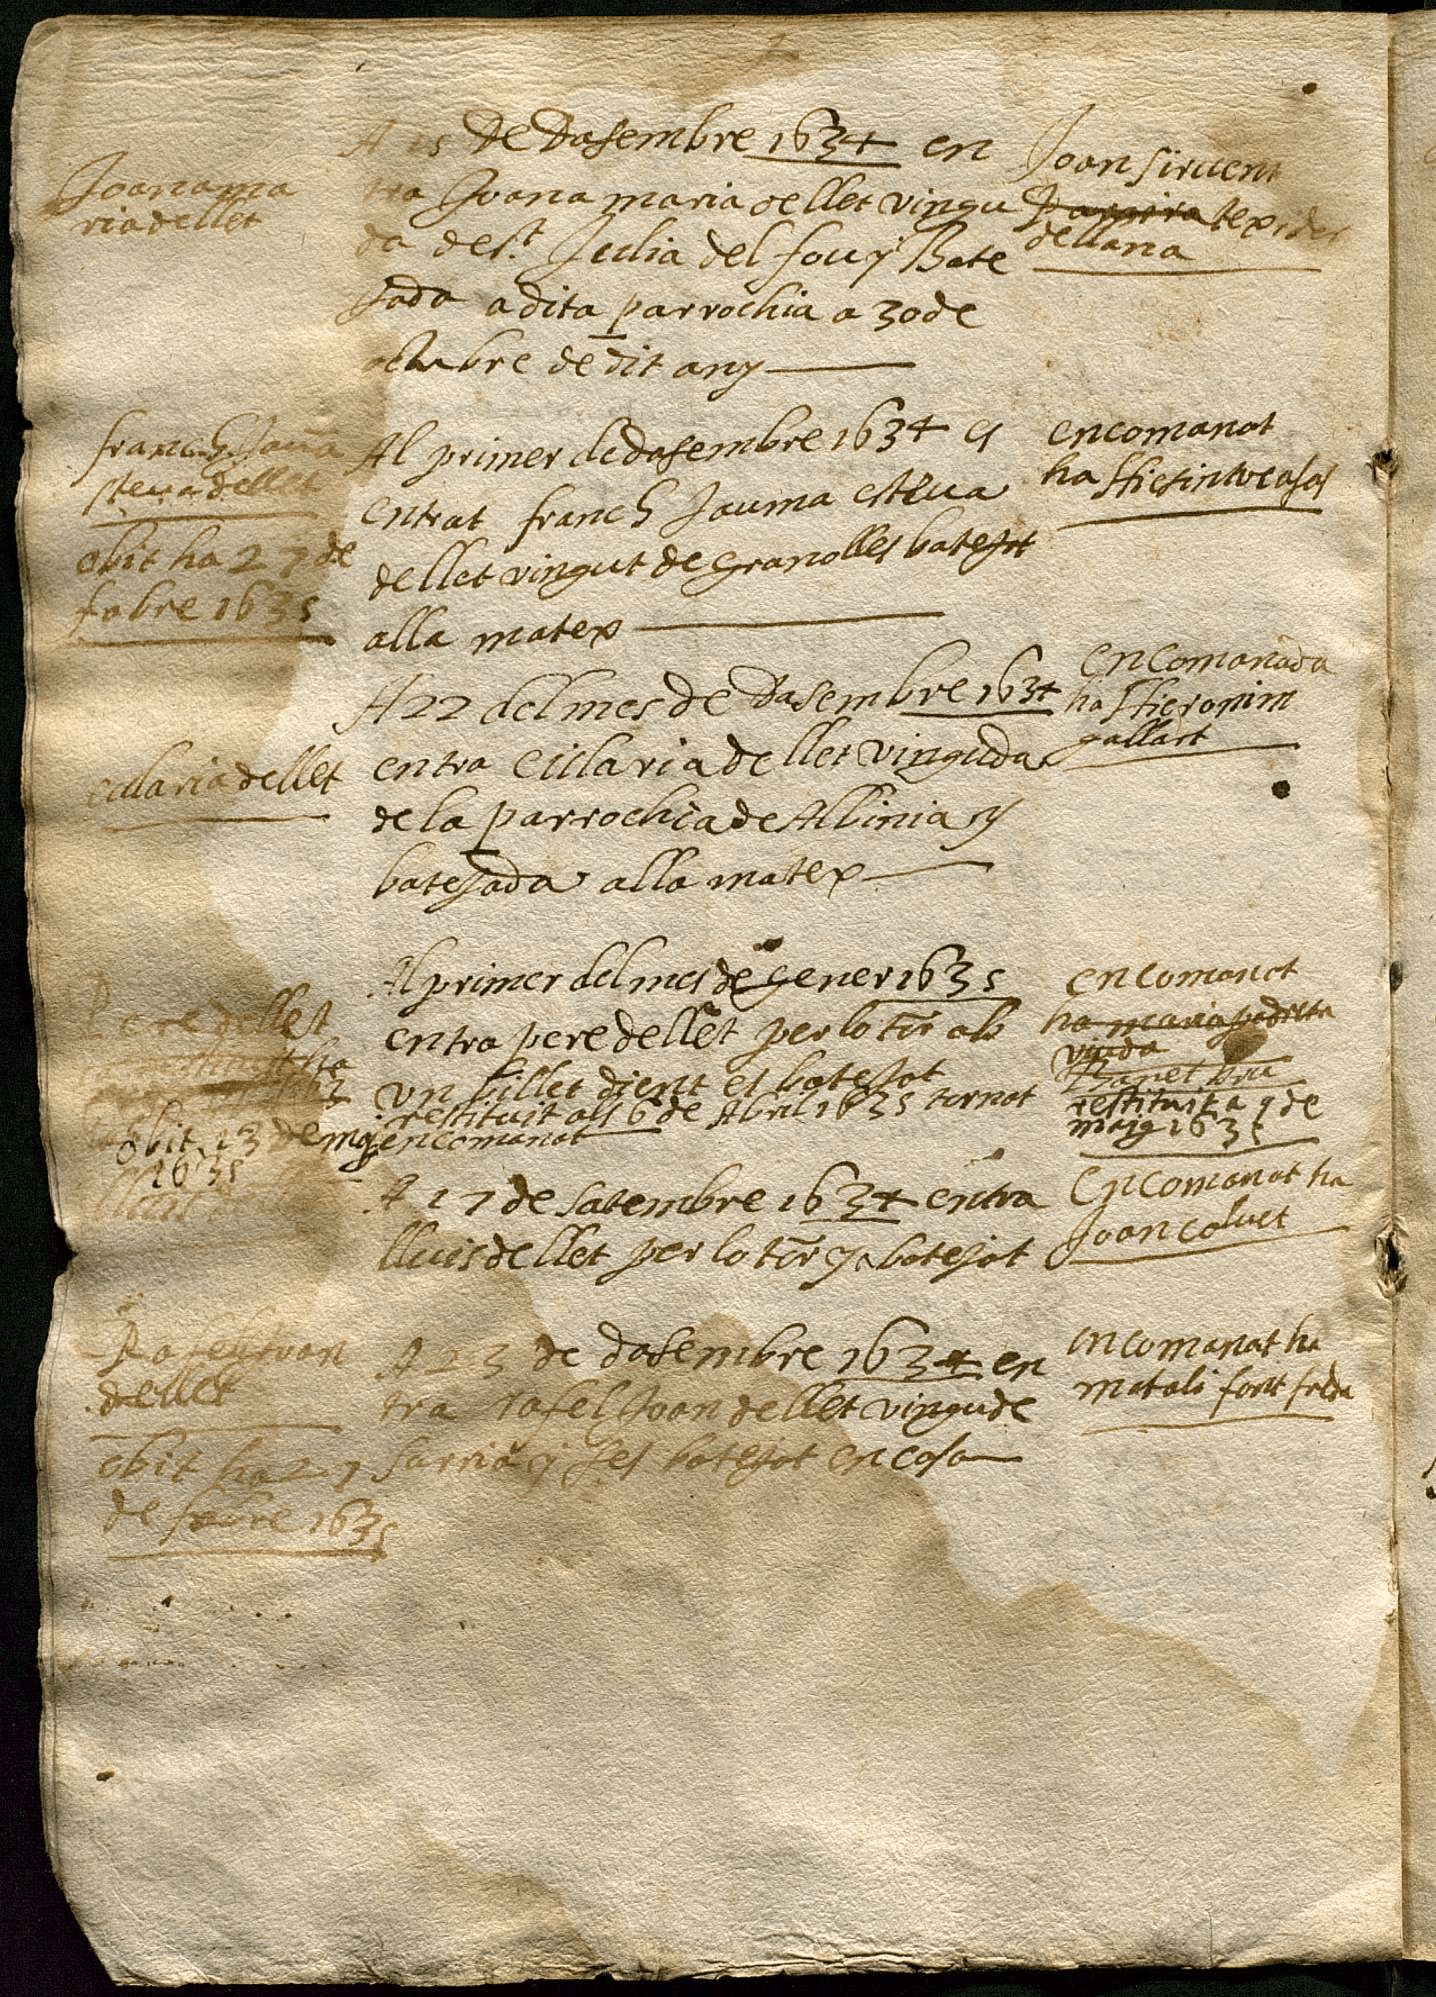 Joana ma
ria de llet
A 15 de Dasembre 1634 en
tra Joana maria de llet vingu
da de st. Julia del fou y Bate
jada a dita parrochia a 30 de
octubre de dit any
Joan
texider
de llana
franch Jaũa
steva de llet
obit ha 27 de
fabre 1635
Al primer de dasembre 1634 es
entrat franch Jauma esteva
de llet vingut de Granolles batejat
alla matex
encomanat
ha
eularia de llet
A 22 del mes de Dasembre 1634
entra eullaria de llet vinguda
de la parrochia de Allinia y
batejada alla matex
encomanada
ha Hieronim
gallart
Pere de llet
obit 23 de maj
1635
Al primer del mes de gener 1635
entra pere de llet per lo tor ab
un billet dient es batejat
restituit als 6 de Abril 1635 tornat
encomanat
encomanat
ha maria
viuda
restituit a 9 de
maig 1635
lluis
A 17 de satembre 1634 entra
lluis de llet per lo tor y batejat
encomanat ha
Joan calvet
Rafel Joan
de llet
obit ha 27
de febre 1635
A 23 de dasembre 1634 en
tra rafel Joan de llet vingu de
Sarria y ses batejat en casa
encomanat ha
matali font freda